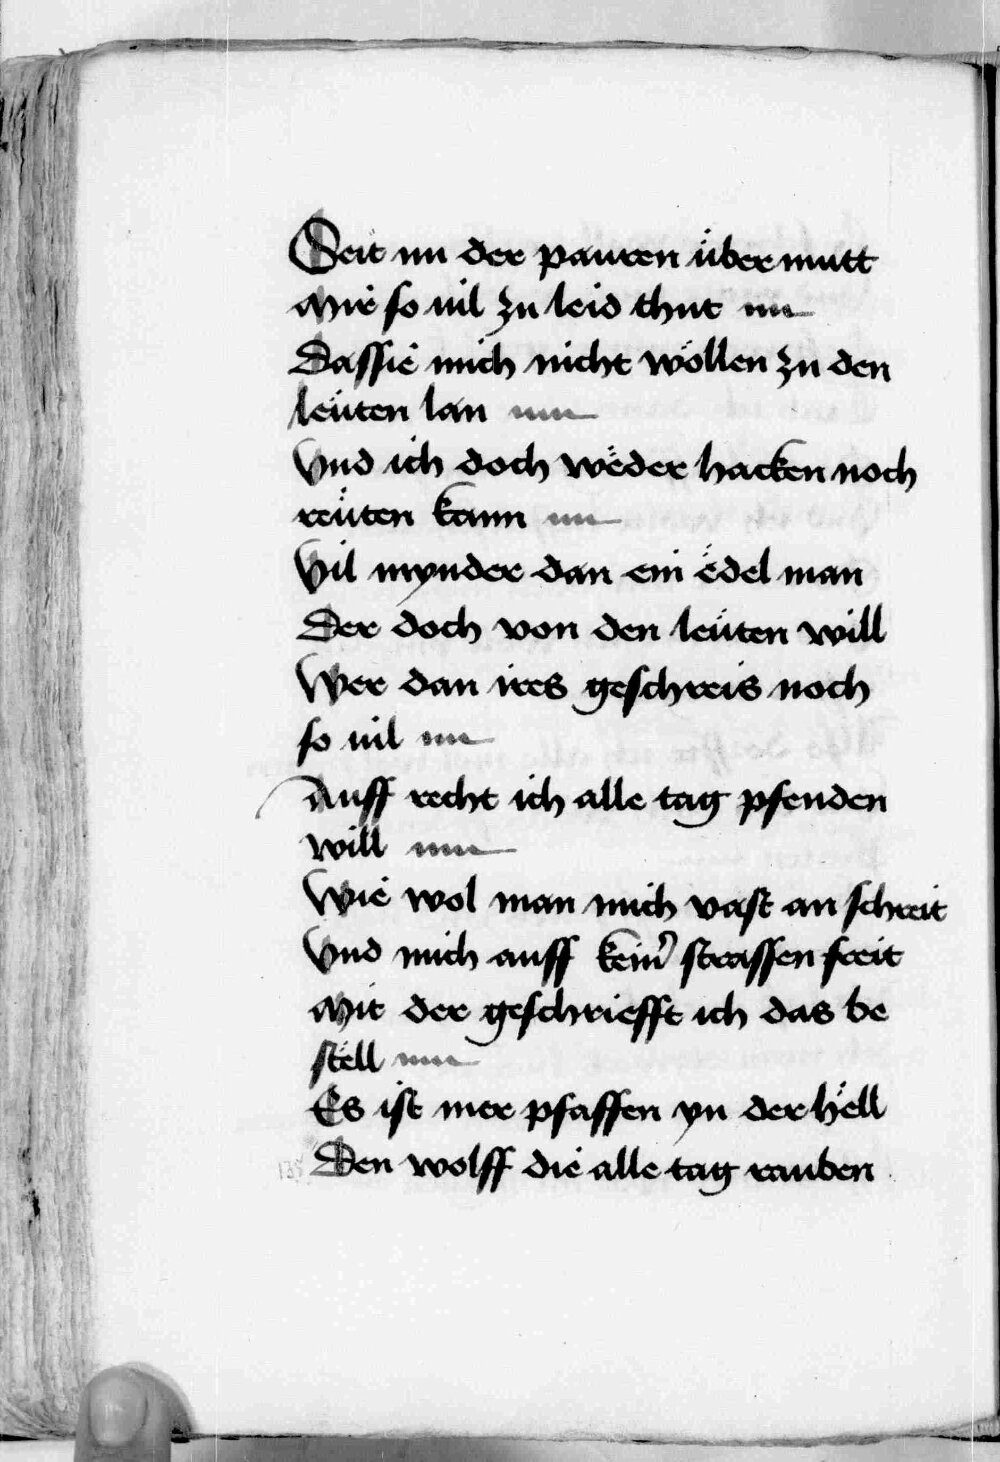 Seit nu der pauren übermutt
Mir so vil zu leid thut
Dassie mich nicht wöllen zu den
leüten lan
Vnd ich doch weder hacken noch
reüten kann
Vil mynder dan ein edel man
Der doch von den leüten will
Wer dan ires geschreis noch
so vil
Auff recht ich alle tag pfenden
will
Wie wol man mich vast an schreit
Vnd mich auff kein͛ strassen freit
Mit der geschriefft ich das be
stell
Es ist mer pfaffen yn der hell
Den wolff die alle tag rauben
135